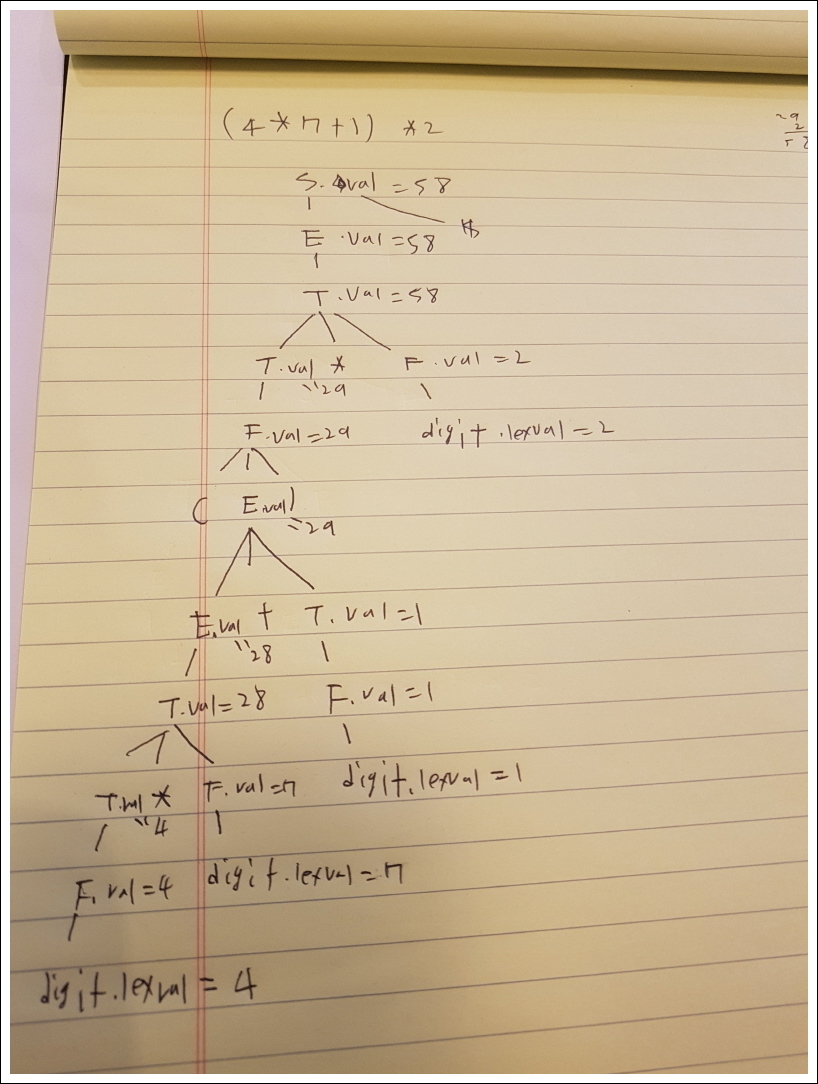 (4*7+1) *2
S.val=58
E.val=58
T.val=58
T.val * F.val=2
=29
F.val=29 digit.lexval=2
( E.val )
=29
E.val + T.val=1
=28
T.val=28 F.val=1
T.val * F.val=7 digit.lexval=1
=4
F.val=4 digit.lexval=7
digit.lexval=4